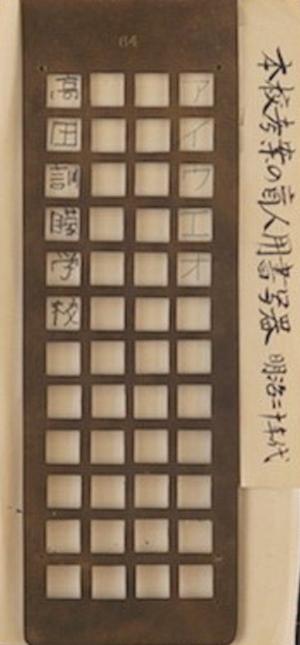 本校考案の盲人用書写器 明治二十年代
64
アイウエオ
高田訓矇学校